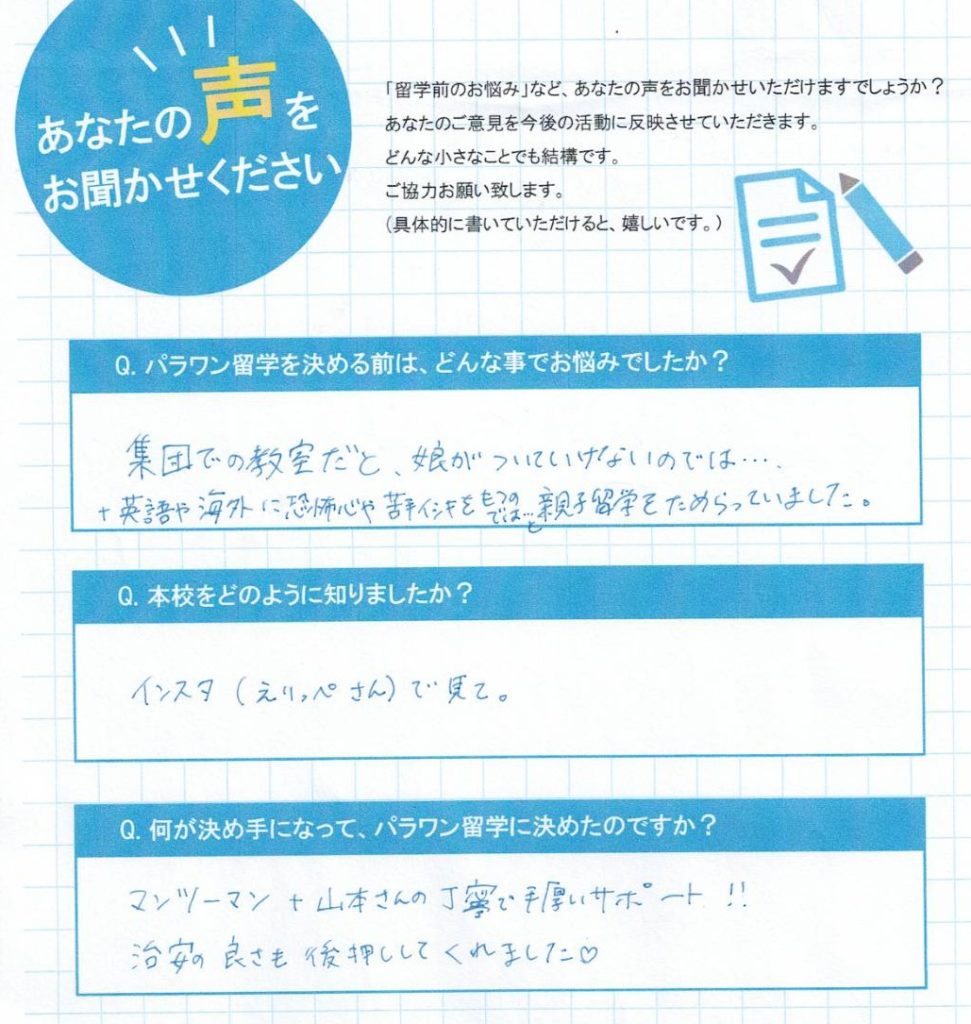 あなたの声を
お聞かせください
「留学前のお悩み」など、あなたの声をお聞かせいただけますでしょうか？
あなたのご意見を今後の活動に反映させていただきます。
どんな小さなことでも結構です。
ご協力お願い致します。
（具体的に書いていただけると、嬉しいです。）
Q. パラワン留学を決める前は、どんな事でお悩みでしたか？
集団での教室だと、娘がついていけないのでは….
+英語や海外に恐怖心や苦手イシキをもつのでは…と親子留学をためらっていました。
Q. 本校をどのように知りましたか？
インスタ（えりっぺさん）で見て。
Q. 何が決め手になって、パラワン留学に決めたのですか？
マンツーマン + 山本さんの丁寧で手厚いサポート!!
治安の良さも後押ししてくれました♡